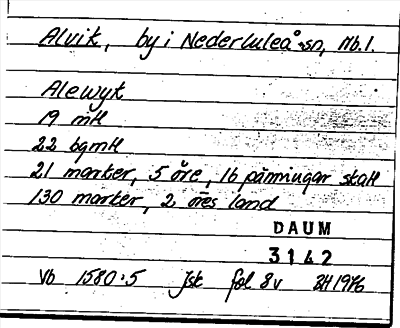 Alvik, by i Nederluleå sn, Nb.l.
Alewyk
19 mtl
22 bgmtl
21 marker, 5 öre, 16 pänningar skatt
130 marker, 2 öres land
DAUM
3142
Vb 1580:5 Jsk fol 8v 24 1976